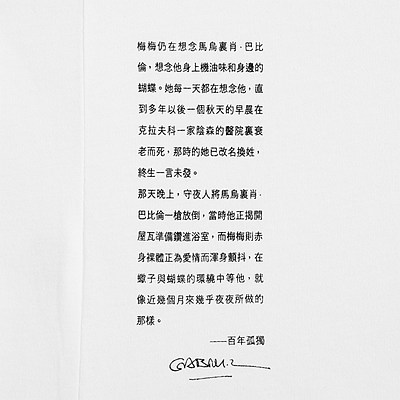 梅梅仍在想念馬烏裏肖·巴比
倫，想念他身上機油味和身邊的
蝴蝶。她每一天都在想念他，直
到多年以後一個秋天的早晨在
克拉夫科一家陰森的醫院裏衰
老而死，那時的她已改名換姓，
終生一言未發。
那天晚上，守夜人將馬烏裏肖·
巴比倫一槍放倒，當時他正揭開
屋瓦準備鑽進浴室，而梅梅則赤
身裸體正為愛情而渾身顫抖，在
蠍子與蝴蝶的環繞中等他，就
像近幾個月來幾乎夜夜所做的
那樣。
——百年孤獨